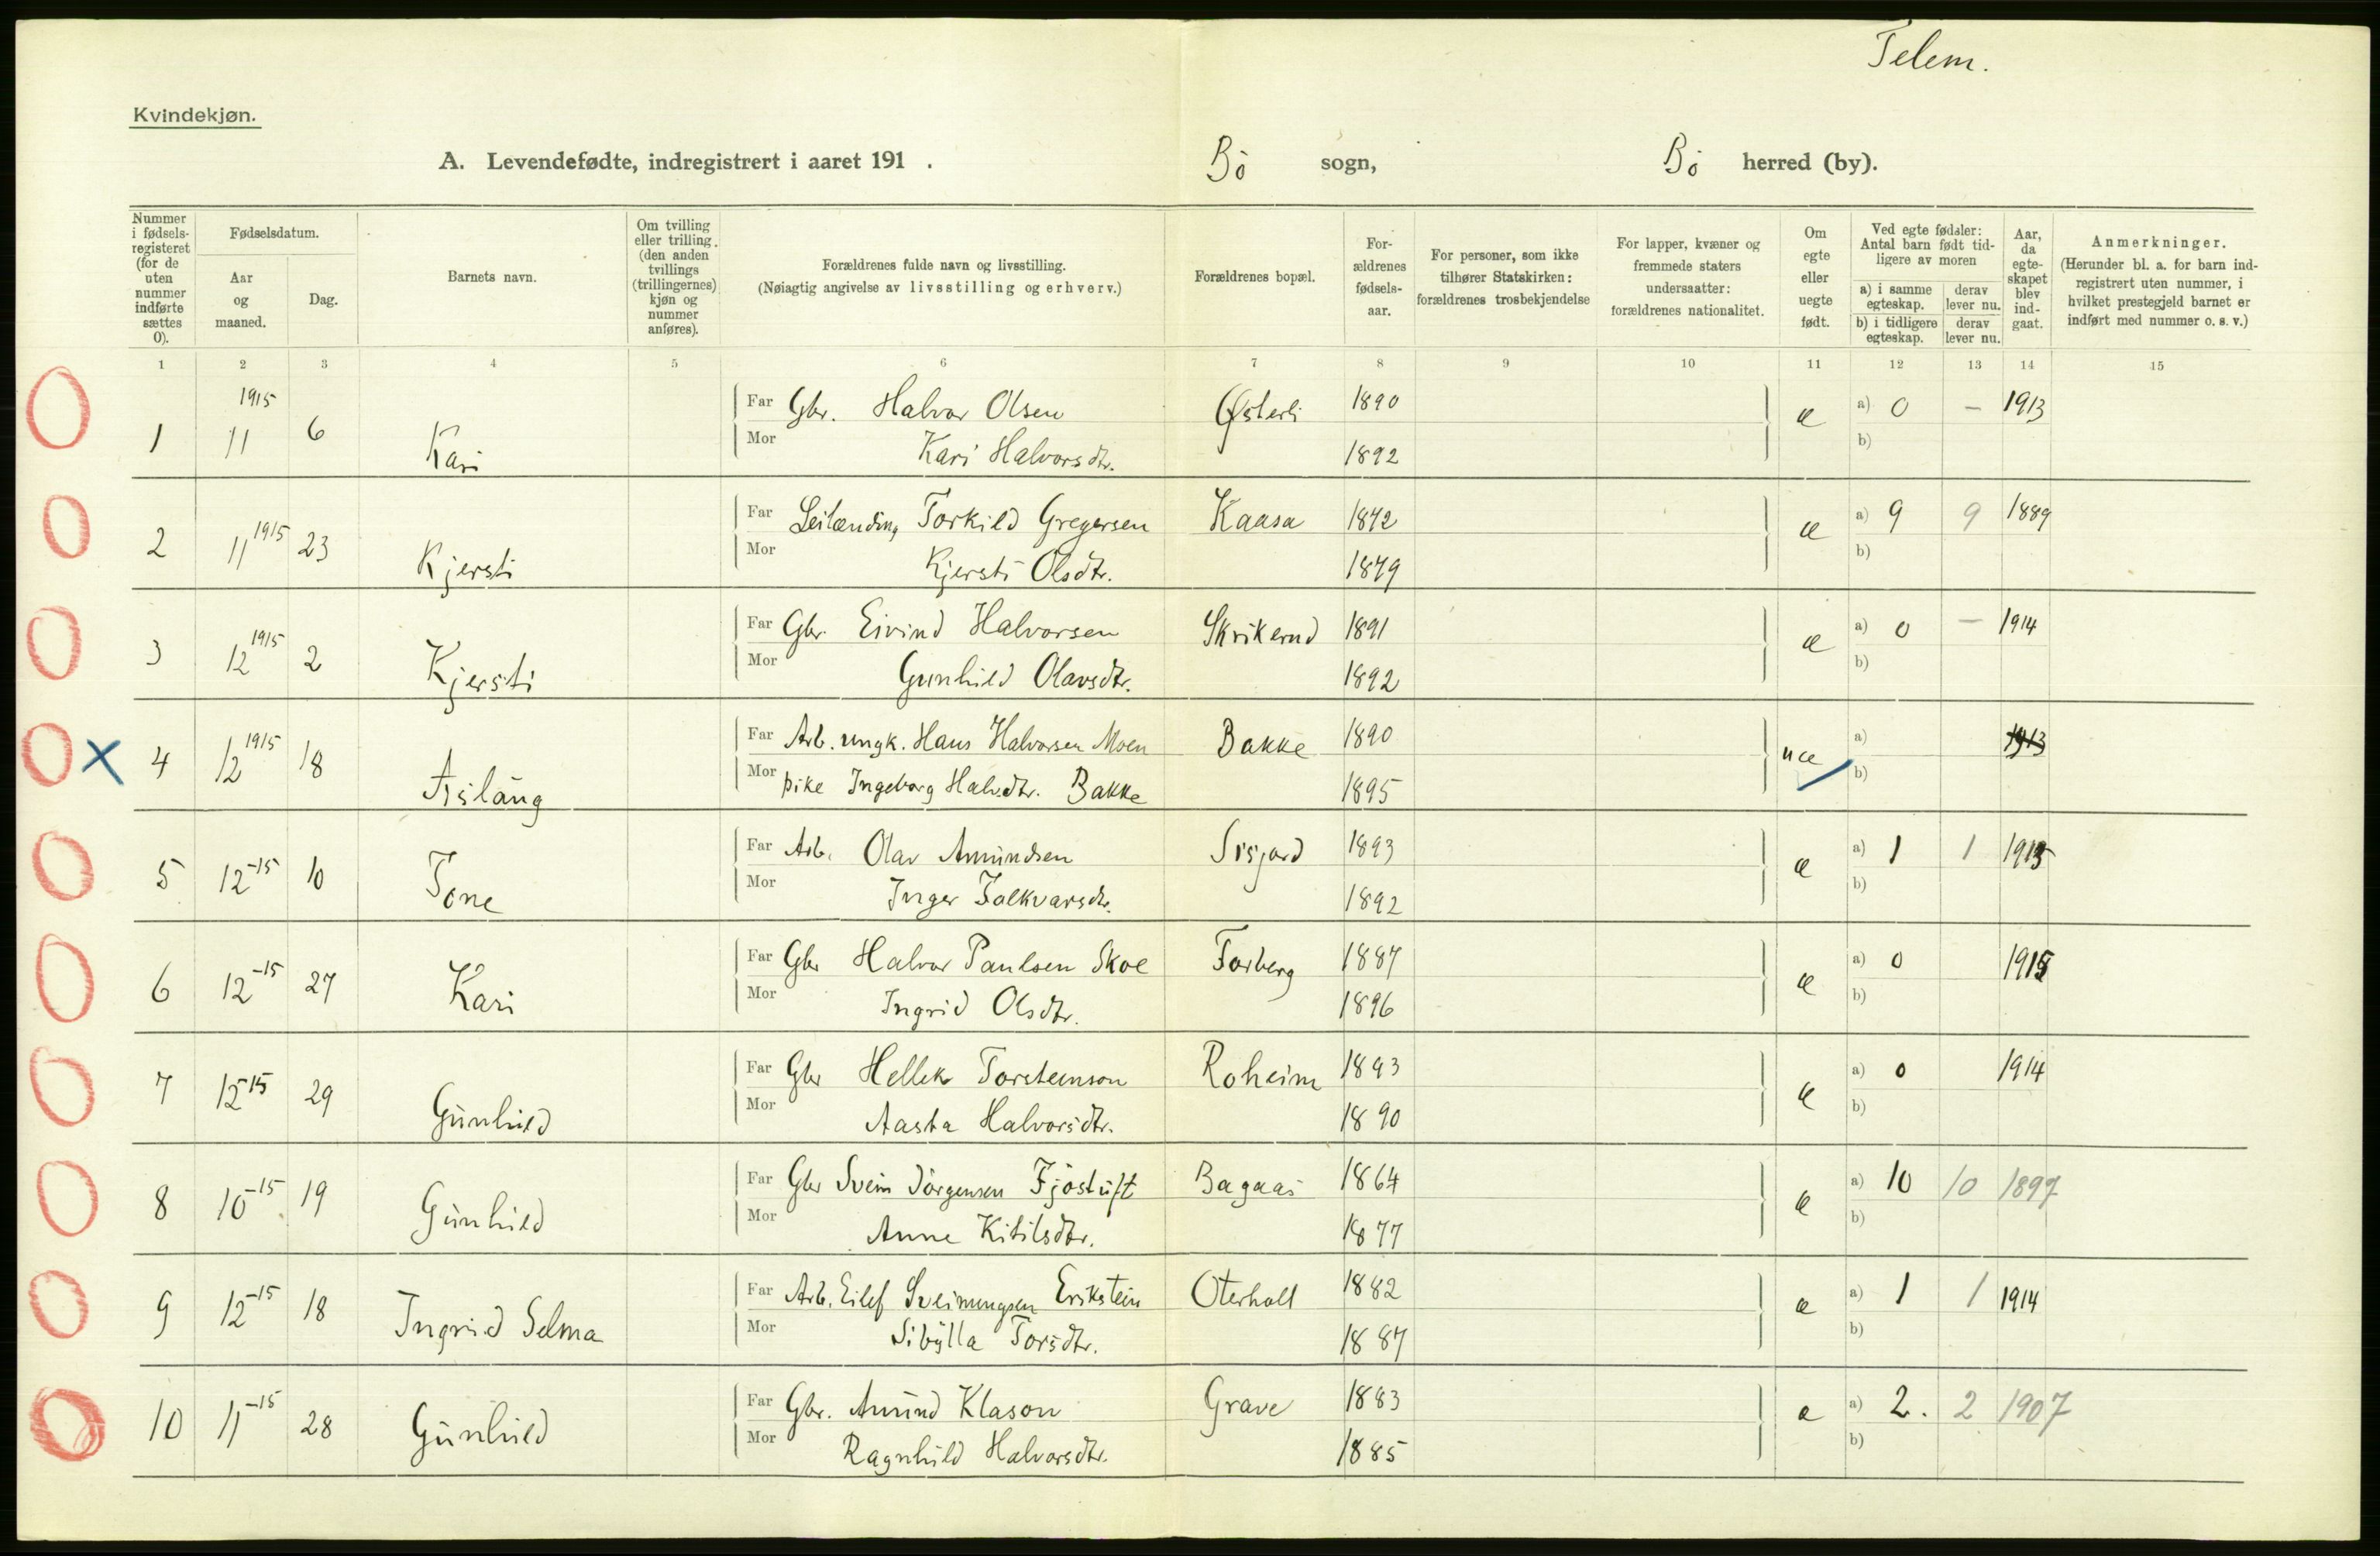 Telem.
Kvindekjøn.
A. Levendefødte, indregistrert i aaret 191 . Bö sogn, Bö herred (by).
Nummer i fødselsregisteret (for de uten nummer indførte sættes 0).
Fødselsdatum.
Aar og maaned.
Dag.
Barnets navn.
Om tvilling eller trilling. (den anden tvillings (trillingernes) kjøn og nummer anføres).
Forældrenes fulde navn og livsstilling.
(Nøiagtig angivelse av livsstilling og erhverv.)
Forældrenes bopæl.
Forældrenes fødselsaar.
For personer, som ikke tilhører Statskirken: forældrenes trosbekjendelse
For lapper, kvæner og fremmede staters undersaatter: forældrenes nationalitet.
Om egte eller uegte født.
Ved egte fødsler: Antal barn født tidligere av moren
a) i samme egteskap. derav lever nu.
b) i tidligere egteskap. derav lever nu.
Aar, da egteskapet blev indgaat.
Anmerkninger.
(Herunder bl. a. for barn indregistrert uten nummer, i hvilket prestegjeld barnet er indført med nummer o. s. v.)
1 2 3 4 5 6 7 8 9 10 11 12 13 14 15
1 1915 11 6 Kari Far Gbr. Halvor Olsen Østerli 1890 æ a) 0 — 1913
Mor Kari Halvorsdtr. 1892 b)
2 11 1915 23 Kjersti Far Leilænding Torkild Gregersen Kaasa 1872 æ a) 9 9 1889
Mor Kjersti Olsdtr. 1879 b)
3 12 1915 2 Kjersti Far Gbr. Eivind Halvorsen Skrikerud 1891 æ a) 0 — 1914
Mor Gunhild Olavsdtr. 1892 b)
4 12 1915 18 Aslaug Far Arb. ungk. Hans Halvorsen Moen Bakke 1890 uæ a) 1913
Mor pike Ingeborg Halvdtr. Bakke 1895 b)
5 12 -15 10 Tone Far Arb. Olav Amundsen Sisjord 1893 æ a) 1 1 1913
Mor Inger Folkvarsdtr. 1892 b)
6 12 -15 27 Kari Far Gbr Halvor Paulsen Skoe Forberg 1887 æ a) 0 1915
Mor Ingrid Olsdtr. 1896 b)
7 12 15 29 Gunhild Far Gbr Hellek Torsteinson Roheim 1893 æ a) 0 1914
Mor Aasta Halvorsdtr. 1890 b)
8 10 -15 19 Gunhild Far Gbr Svein Jörgensen Fjöstuft Bagaas 1864 æ a) 10 10 1897
Mor Anne Kitilsdtr. 1877 b)
9 12 -15 18 Ingrid Selma Far Arb. Eilef Sveinungsen Erikstein Oterholt 1882 æ a) 1 1 1914
Mor Sibylla Torsdtr. 1887 b)
10 11 -15 28 Gunhild Far Gbr. Amund Klason Grave 1883 æ a) 2. 2 1907
Mor Ragnhild Halvorsdtr. 1885 b)